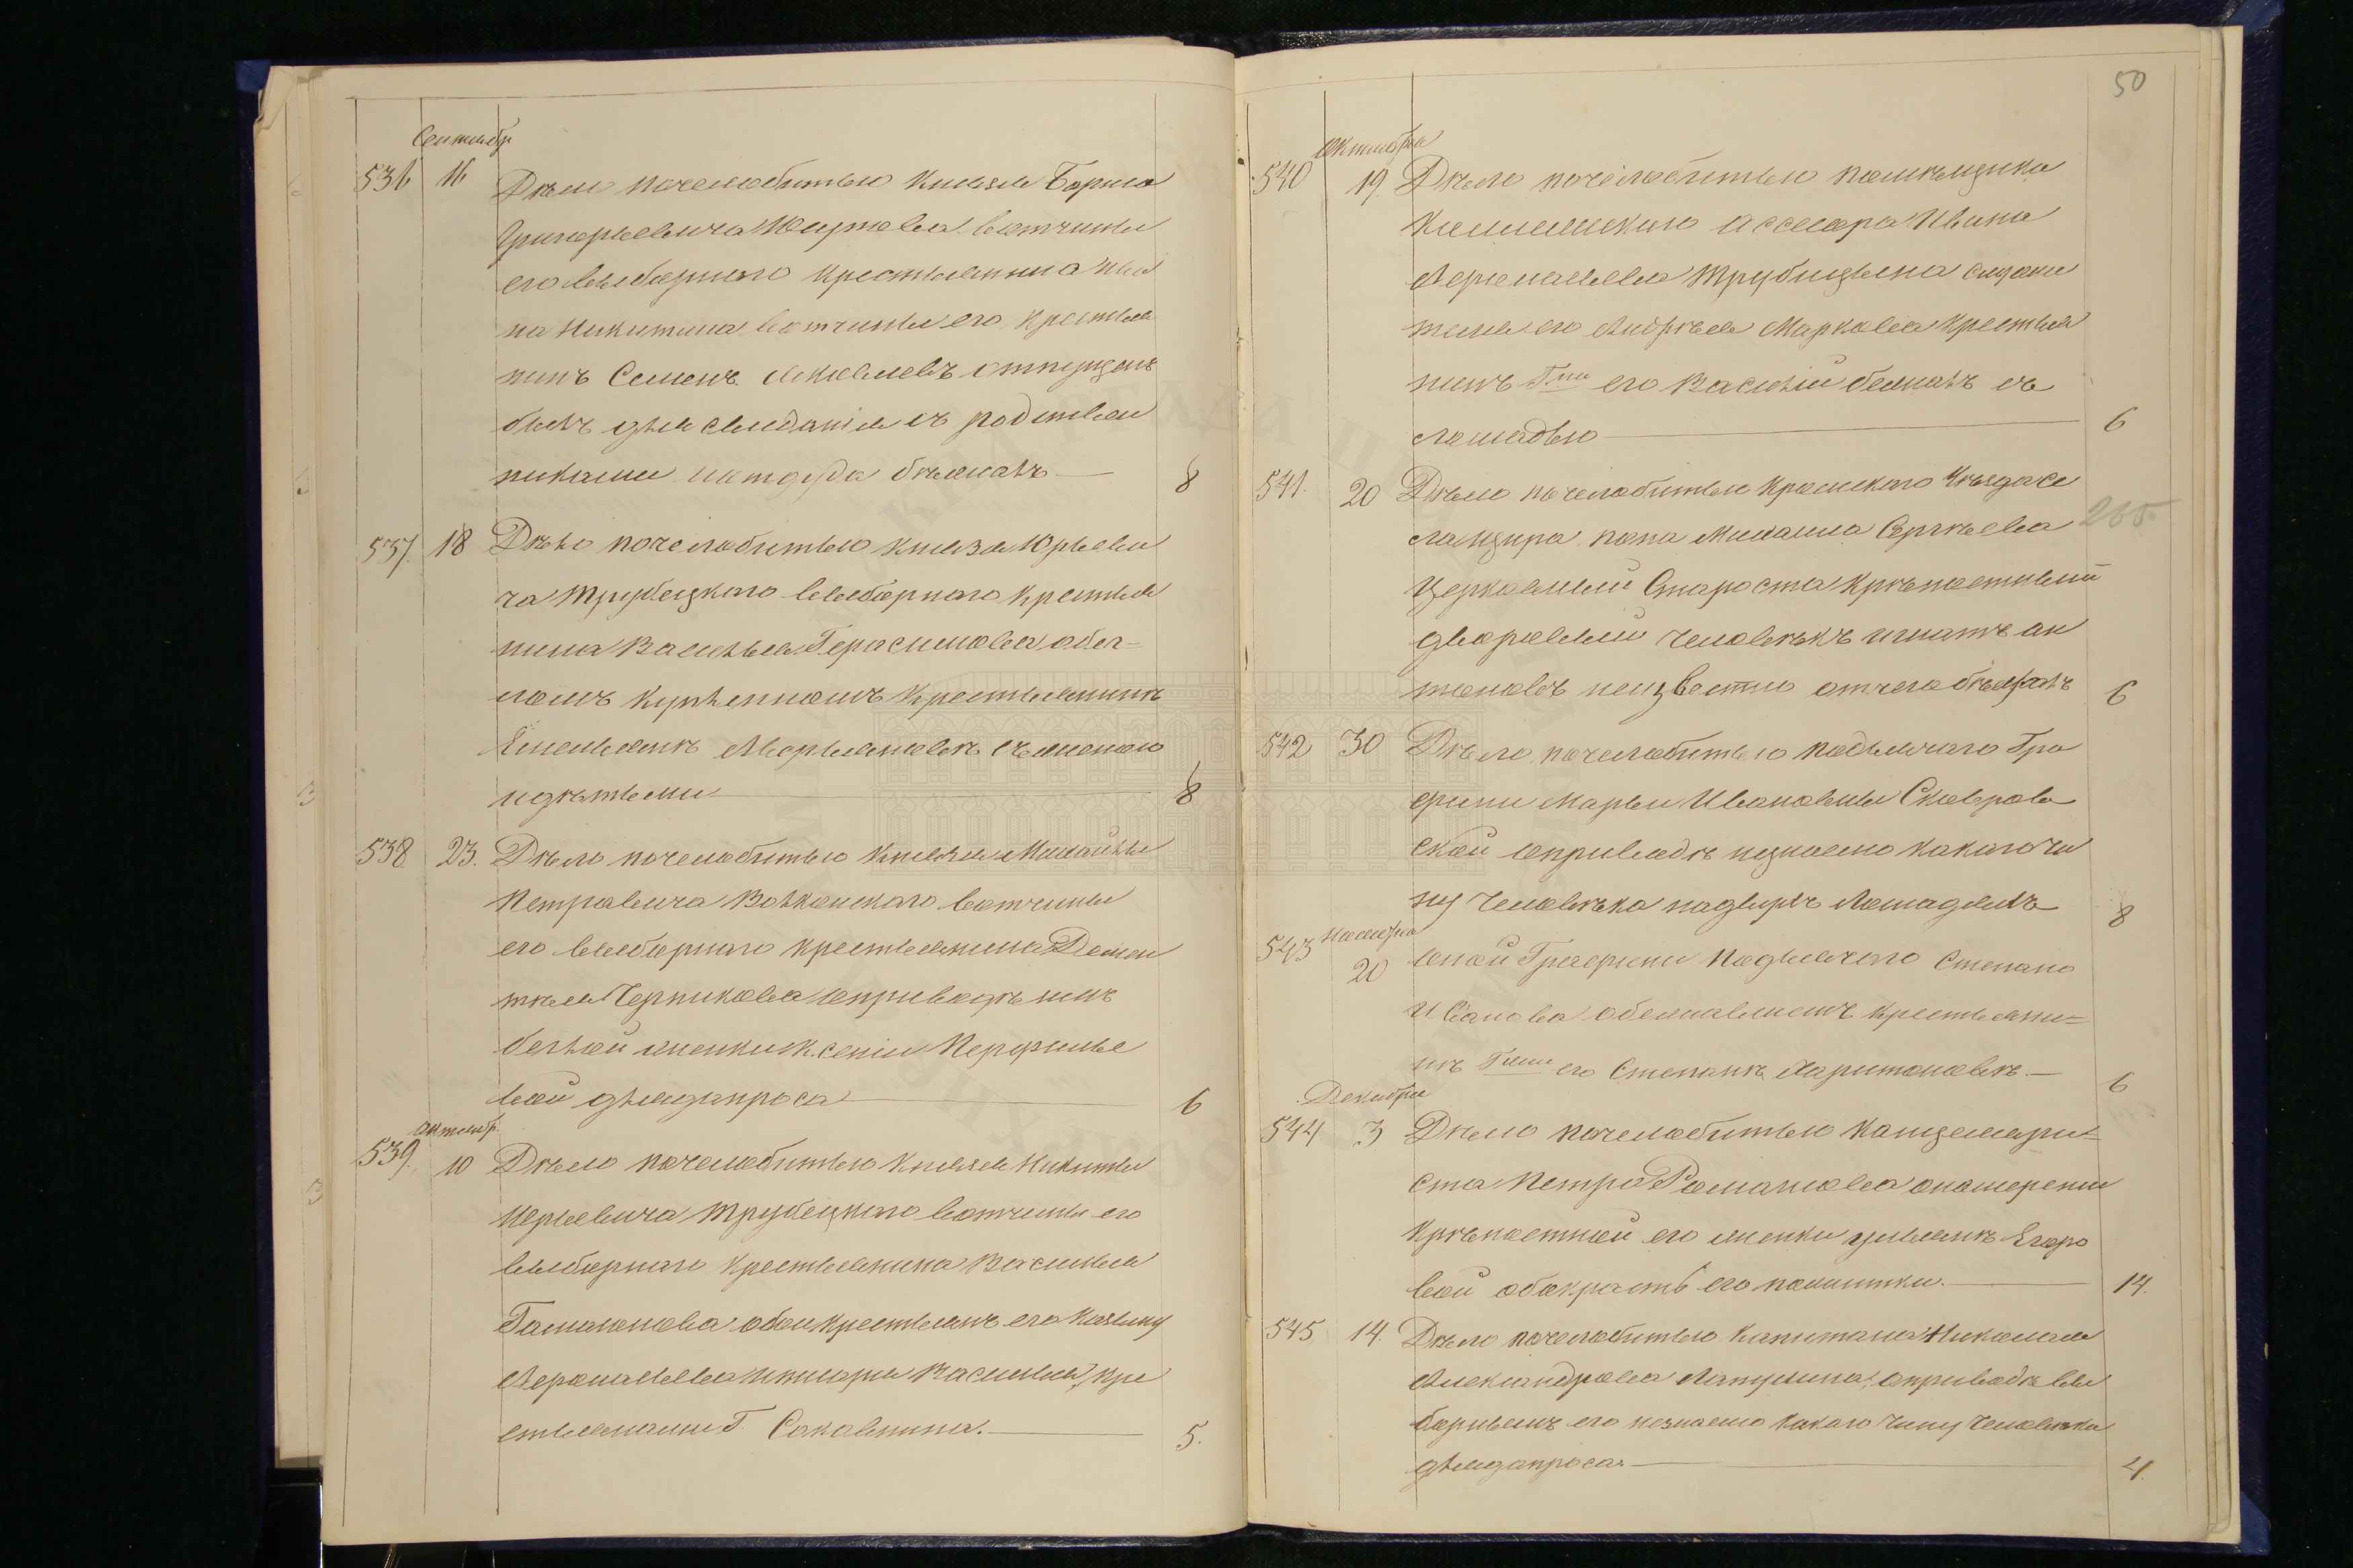 Сентябр.
536 16 Дѣло почелобитью Князя Бориса
Григорьевича Юсупова вотчины
его выборного крестьянина Ива
на Никитина вотчины его крестья
нинъ Семенъ Яковлевъ отпущенъ
былъ для свиданія съ родствен
никами иоттуда бѣжалъ 8
537. 18 Дѣло почелобитью Князя Юрьеви
ча Трубецкого выборного крестья
нина Василья Герасимова обег-
ломъ крестьянинѣ
сженою
идѣтьми 8
538 23. Дѣло почелобитью Князя Михайлы
Петровича Волконского вотчины
его выборного крестьянина Демен
тья Черникова оприводѣ имъ
беглой женки Ксеніи Перфилье
вой длядопроса 6
Октябр.
539. 10 Дѣло почелобитью Князя Никиты
Юрьевича Трубецкого вотчины его
выборного крестьянина Василья
обои крестьянъ его Козьму
Василья, кре
стьянами Г. Соковнина. 5.
50
Октября
540 19. Дѣло почелобитью помѣщика
Коллежского Ассесора Ивана
Афонасьева Трубицына служи
теля его Андрѣя Маркова крестья
нинъ Гна его Василій бежалъ съ
лошадью 6
541. 20 Дѣло почелобитью Уѣзда се
ла попа Михаила Сергѣева
Церковный Староста Крѣпостный
дворовый человѣкъ Игнатъ Ан
тоновъ неизвестно отчего 6
542 30 Дѣло почелобитью подьячаго Гра
фини Марьи Ивановны Скавров
ской оприводѣ незнаемо какого чи
ну человѣка надвухъ лошадяхъ 8
Ноября
543 20 оной Графини Подьячего Степана
Иванова обежавшемъ крестьяни-
нѣ Гжи его Степанѣ Харитоновѣ. 6
Декабря
544 3 Дѣло почелобитью Канцеляри-
ста Петра Романова онамерении
крѣпостной его женки Ульянѣ Егоро
вой обокрасть его пожитки. 14.
545 14. Дѣло почелобитью Капитана Николая
Александрова Лопухина, оприводѣ вы
борнымъ его незнаемо какого чину человѣка
длядопроса. 4.